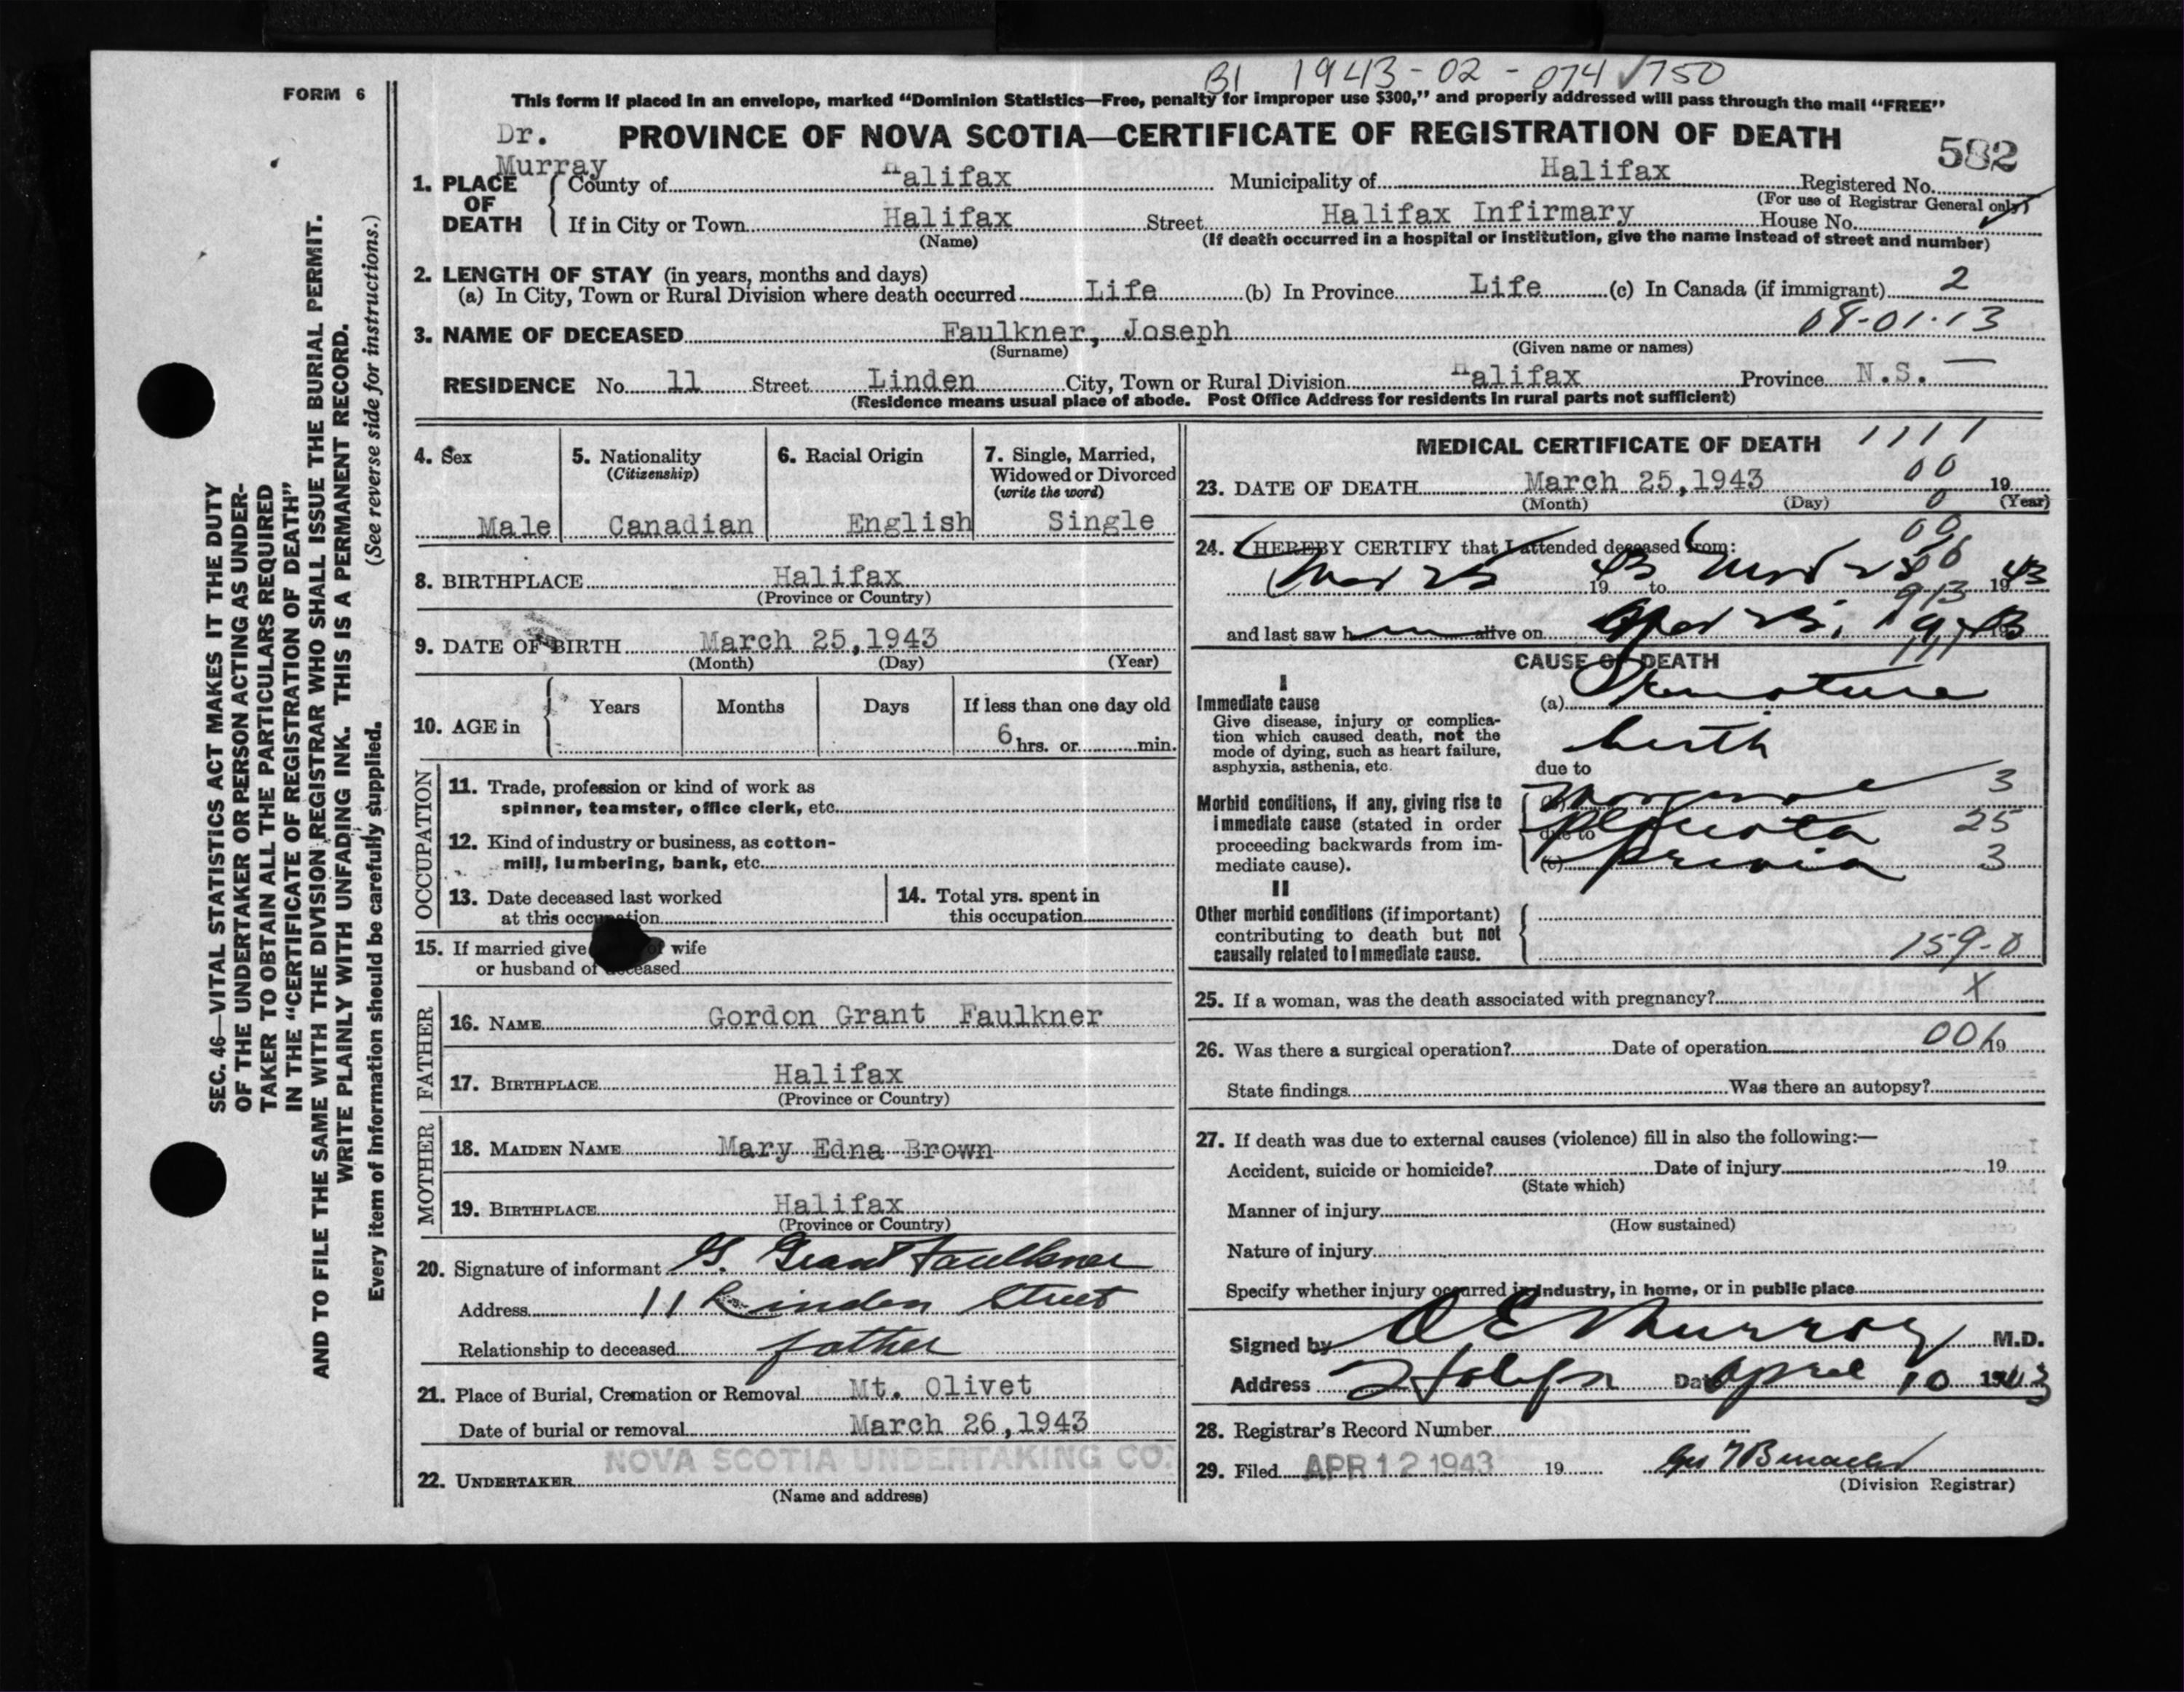 B1 1943-02-074750
FORM 6
This form if placed in an envelope, marked "Dominion Statistics—Free, penalty for improper use $300," and properly addressed will pass through the mail "FREE"
Dr.
Murray
PROVINCE OF NOVA SCOTIA—CERTIFICATE OF REGISTRATION OF DEATH
582
1. PLACE OF DEATH
County of Halifax Municipality of Halifax Registered No.
(For use of Registrar General only)
If in City or Town Halifax Street Halifax Infirmary House No.
(Name) (If death occurred in a hospital or institution, give the name instead of street and number)
2. LENGTH OF STAY (in years, months and days)
(a) In City, Town or Rural Division where death occurred Life (b) In Province Life (c) In Canada (if immigrant) 2
08-01-13
3. NAME OF DECEASED Faulkner, Joseph
(Surname) (Given name or names)
RESIDENCE No. 11 Street Linden City, Town or Rural Division Halifax Province N.S. —
(Residence means usual place of abode. Post Office Address for residents in rural parts not sufficient)
4. Sex
Male
5. Nationality
(Citizenship)
Canadian
6. Racial Origin
English
7. Single, Married,
Widowed or Divorced
(write the word)
Single
8. BIRTHPLACE Halifax
(Province or Country)
9. DATE OF BIRTH March 25,1943
(Month) (Day) (Year)
10. AGE in
Years Months Days If less than one day old
6 hrs. or min.
OCCUPATION
11. Trade, profession or kind of work as
spinner, teamster, office clerk, etc.
12. Kind of industry or business, as cotton-
mill, lumbering, bank, etc.
13. Date deceased last worked
at this occupation
14. Total yrs. spent in
this occupation
15. If married give of wife
or husband of deceased
FATHER
16. NAME Gordon Grant Faulkner
17. BIRTHPLACE Halifax
(Province or Country)
MOTHER
18. MAIDEN NAME Mary Edna Brown
19. BIRTHPLACE Halifax
(Province or Country)
20. Signature of informant G. Grant Faulkner
Address 11 Linden Street
Relationship to deceased father
21. Place of Burial, Cremation or Removal Mt. Olivet
Date of burial or removal March 26,1943
NOVA SCOTIA UNDERTAKING CO.
22. UNDERTAKER
(Name and address)
MEDICAL CERTIFICATE OF DEATH 1111
00
23. DATE OF DEATH March 25,1943 19
(Month) (Day) (Year)
0
00
24. I HEREBY CERTIFY that I attended deceased from:
Mar 25 1943 to 1943
and last saw h alive on
CAUSE OF DEATH
I
Immediate cause
Give disease, injury or complica-
tion which caused death, not the
mode of dying, such as heart failure,
asphyxia, asthenia, etc.
(a) Premature
birth
due to
Morbid conditions, if any, giving rise to
immediate cause (stated in order
proceeding backwards from im-
mediate cause).
(b) Marginal 3
due to Placenta 25
(c) previa 3
II
Other morbid conditions (if important)
contributing to death but not
causally related to immediate cause.
159-0
25. If a woman, was the death associated with pregnancy? X
26. Was there a surgical operation? Date of operation 19
State findings Was there an autopsy?
27. If death was due to external causes (violence) fill in also the following:—
Accident, suicide or homicide? Date of injury 19
(State which)
Manner of injury
(How sustained)
Nature of injury
Specify whether injury occurred in Industry, in home, or in public place
Signed by Murray M.D.
Address Halifax Date April 10 1943
28. Registrar's Record Number
29. Filed APR 12 1943 19
(Division Registrar)
SEC. 46—VITAL STATISTICS ACT MAKES IT THE DUTY
OF THE UNDERTAKER OR PERSON ACTING AS UNDER-
TAKER TO OBTAIN ALL THE PARTICULARS REQUIRED
IN THE "CERTIFICATE OF REGISTRATION OF DEATH"
AND TO FILE THE SAME WITH THE DIVISION REGISTRAR WHO SHALL ISSUE THE BURIAL PERMIT.
WRITE PLAINLY WITH UNFADING INK. THIS IS A PERMANENT RECORD.
Every item of information should be carefully supplied. (See reverse side for instructions.)